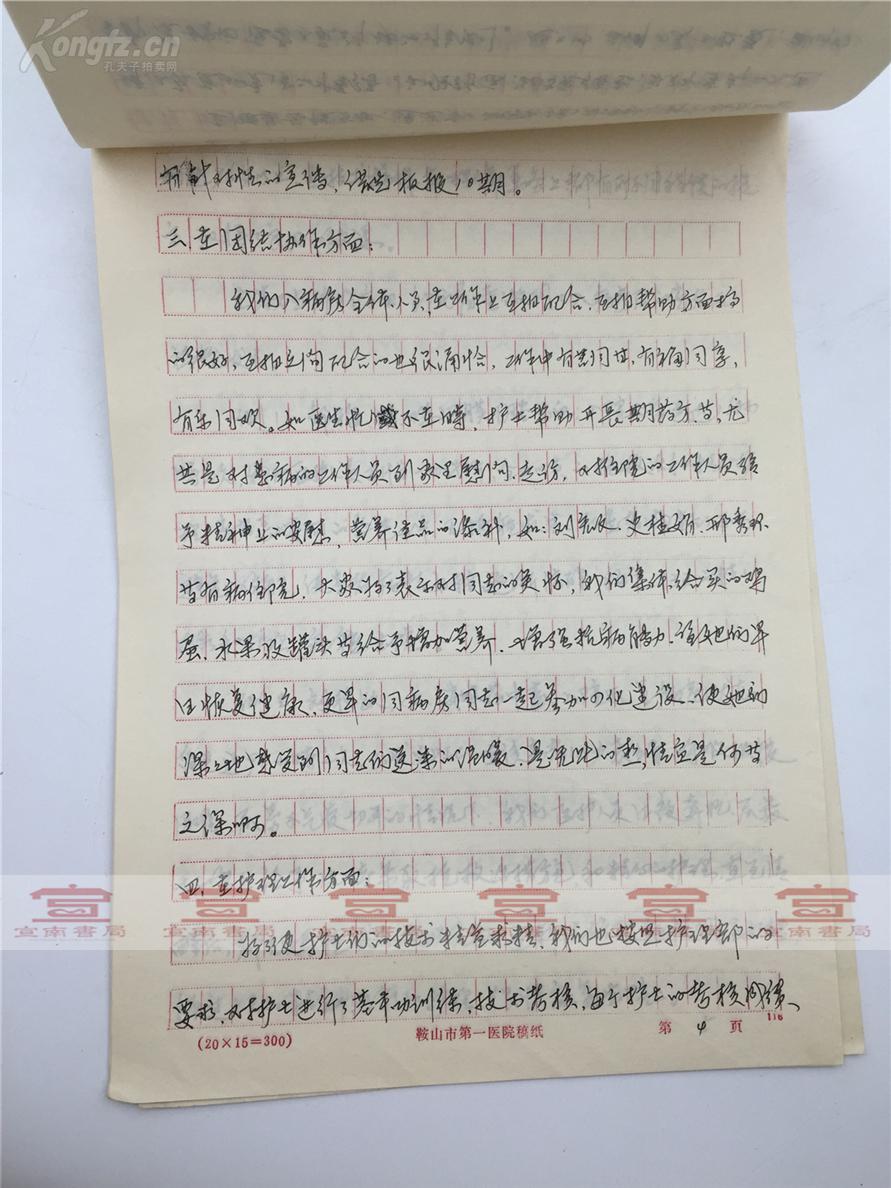 Kongfz.cn
孔夫子拍卖网
有针对性的宣传，缮写板报10期。
三、在团结协作方面：
我们八病房全体人员，在工作上互相配合、互相帮助方面搞
的很好，互相之间配合的也很融洽，工作中有苦同甘，有福同享，
有乐同欢。如医生忙或不在时，护士帮助开长期药方等，尤
其是对患病的工作人员到家里慰问、走访，对住院的工作人员给
予精神上的安慰，营养佳品的添补，如：刘
等有病住院，大家为了表示对同志的关怀，我们集体给买的鸡
蛋、水果及罐头等给予增加营养，增强抗病能力，让她们早
日恢复健康，更早的同病房同志一起参加四化建设，使她们
深深地感受到同志们送来的温暖，是凭此的热情宜是何等
之深啊。
四、在护理工作方面：
为了使护士们的技术精益求精，我们也按照护理部的
要求，对护士进行了基本功训练，技术考核，每个护士的考核成绩、
(20×15=300)
鞍山市第一医院稿纸
第 4 页
116
宣南書局
宣南書局
宣南書局
宣南書局
宣南書局
宣南書局